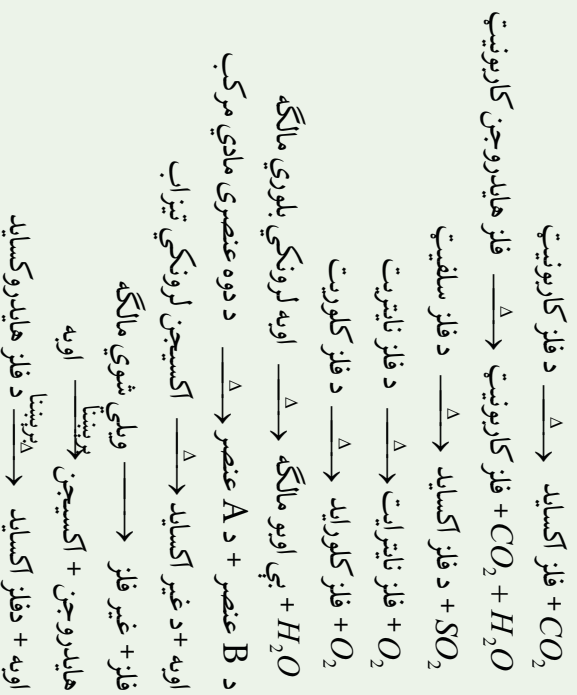 د فلز کاربونیټ —Δ→ فلز اکساید + CO₂
فلز هایدروجن کاربونیټ —Δ→ فلز کاربونیټ + CO₂ + H₂O
د فلز سلفیټ —Δ→ د فلز اکساید + SO₂
د فلز نایتریت —Δ→ فلز نایترایت + O₂
د فلز کلوریت —Δ→ فلز کلوراید + O₂
اوبه لرونکي بلوري مالګه —Δ→ بې اوبو مالګه + H₂O
د دوه عنصری مادي مرکب —Δ→ د A عنصر + د B عنصر
اکسیجن لرونکي تیزاب —Δ→ اوبه + د غیر اکساید
ویلي شوي مالګه —برېښنا→ فلز + غیر فلز
اوبه —برېښنا→ هایدروجن + اکسیجن
د فلز هایدروکساید —Δ→ اوبه + دفلز اکساید